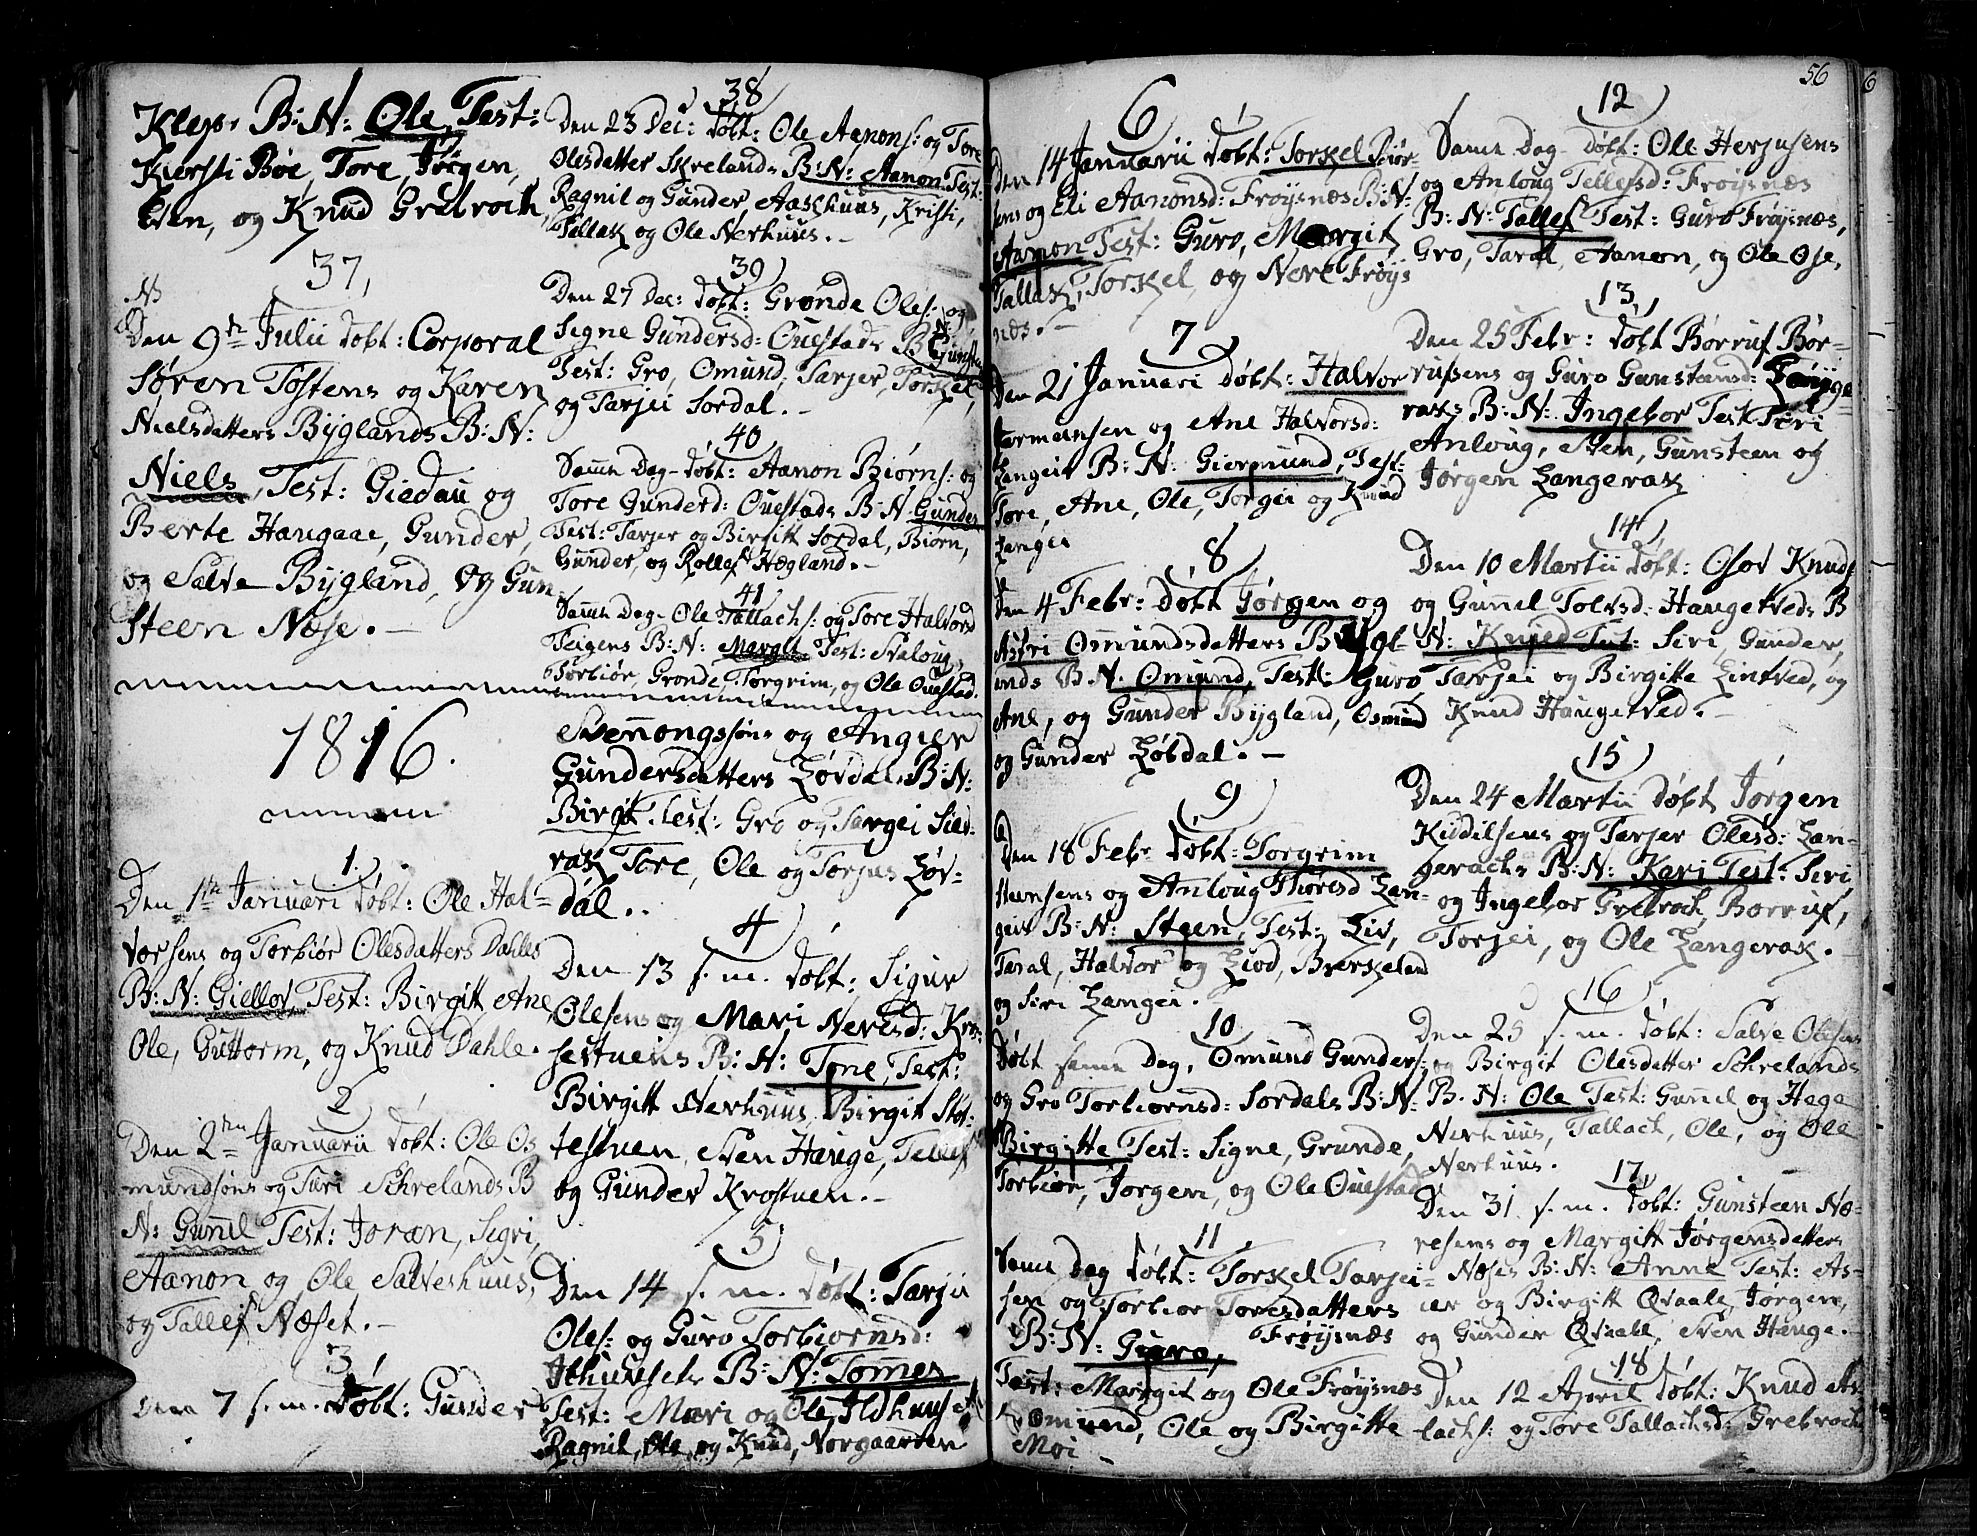 Klep. B: N: Ole, Test:
Kiersti Bøe, Tore, Jørgen,
Even, og Knud Grebroch,
37,
Den 9de Julii døbt: Corporal
Søren Tostens og Karen
Nielsdatters Byglands B: N:
Niels, Test: Giedau og
Berte Haugaae, Gunder,
og Salve Bygland, og Gun-
steen Nøse. -
1816.
1.
Den 1ste Januari døbt: Ole Hal-
vorsens og Torbiør Olesdatters Dahles
B: N: Giellov, Test: Birgitt, Ane,
Ole, Guttorm, og Knud Dahle.
2
Den 2den Januarii døbt: Ole Os
mundsøns og Siri Schrelands B
N: Gunnil Test: Joran, Sigri,
Aanon og Ole Salveshuus,
og Tallef Næset. -
3,
Den 7 s. m. døbt: Gunder
38
Den 23 Dec: døbt: Ole Aanons: og Tore
Olesdatter Skrelands B: N: Aanon Test:
Ragnil og Gunder Aaschuus, Kristi,
Tallak og Ole Nerhuus. -
39
Den 27 Dec: døbt: Gronde Oles: og
Signe Gundersd: Ouestads B: N: Gunder
Test: Gro, Omund, Tarjer, Torkel,
og Tarjei Sordal. -
40
Samme Dag- døbt: Aanon Biørns: og
Tore Gunderd: Ouestads B: N Gunder
Test: Tarjer og Birgitt Sordal, Biørn,
Gunder, og Rollef Hægland. -
41
Samme Dag- Ole Tallachs: og Tore Halvord
Teigens B: N: Margit Test: Svaloug,
Torbiør, Gronde, Torgrim, og Ole Ouestad.
Svennongssøns og Angier
Gundersdatters Lørdals B: N:
Birgit. Test: Gro og Targei Sied-
rak Tore, Ole og Torjus Lør-
dal..
4
Den 13 s. m. døbt: Sigur
Olesens og Mari Nerisd: Kro-
sestuens B: N: Tone, Test:
Birgitt Nerhuus, Birgit Støl-
testuen, Sven Hauge, Tellef
og Gunder Krostuen. -
5
Den 14 s. m. døbt: Tarjei
Oles: og Guro Torbiornsd:
Ilhuusets B: N: Tomes
Test: Mari og Ole Ildhuuset,
Ragnil, Ole, og Knud, Norgaarden
56
6
Den 14 Januarii døbt: Torkel Biør-
sens og Eli Aanonsd: Frøysnæs B: N:
Aanon Test: Guro, Margit,
Tallak, Torkel, og Nere Frøys
næs. -
7
Den 21 Januari døbt: Halvor
Giermunsen og Ane Halvorsd:
Langeis B: N: Giermund, Test:
Tore, Ane, Ole, Torgei og Knud
Langei
8
Den 4 Febr: døbt Jørgen og
Astri Omundsdatters Bygl-
ands B N. Omund, Test: Guro,
Ane, og Gunder Bygland, Osmund
og Gunder Løbdal. -
9
Den 18 Febr døbt: Torgrim
Stensens og Anloug Thoresd Lan-
geis B: N: Steen, Test: Liv,
Taral, Halvor og Liod, Bverskeland
og Siri Langei.
10
Døbt samme Dag, Omund Gunders:
og Gro Torbiornsd: Sordals B: N:
Birgitte Test: Signe, Grunde,
Torbiør, Jorgen, og Ole Ouestad
11
Samme Dag døbt: Torkel Tarjei-
sen og Torbior Toresdatters
Frøysnæs
B: N: Guro,
Test: Margit og Ole Frøysnæs
Omund, Ole og Birgitte
Moi
12
Samme Dag- døbt: Ole Herjusens
og Anloug Tellefsd: Frøysnæs
B: N: Tallef Test: Guro Frøysnæs,
Gro, Taral, Aanon, og Ole Ose,
13,
Den 25 Febr: døbt Børruf Bør-
rufsens og Guro Gunsteensd: Lange
raks B: N: Ingebor Test Siri
Anloug, Sten, Gunsteen og
Jørgen Langerak
14,
Den 10 Martii døbt: Osov Knuds
og Gunnil Tolvsd: Haugetveds B
N: Knud Test: Siri, Gunder,
Tarjei og Birgitte Lintved, og
Knud Haugetved. -
15
Den 24 Martii døbt Jørgen
Kiddilsens og Tarjer Olesd: Lan-
gerachs B: N: Kari Test: Siri,
og Ingebor Grebroch, Borruf,
Torjei, og Ole Langerak. -
16
Den 25 s. m. døbt: Salve Olesens
og Birgit Olesdatter Schrelands
B. N: Ole Test: Gunnil og Hæge
Nerhuus, Tallach, Ole, og Ole
Nerhuus.
17,
Den 31 s. m. døbt: Gunsteen Næ-
resens og Margitt Jørgensdatters
Nøses B: N: Anne Test: As-
ier og Birgitt Qvaale, Jørgen,
og Gunder Qvaale, Sven Hauge. -
18
Den 12 April døbt: Knud As-
lachs: og Tore Tallachsd: Grebrochs